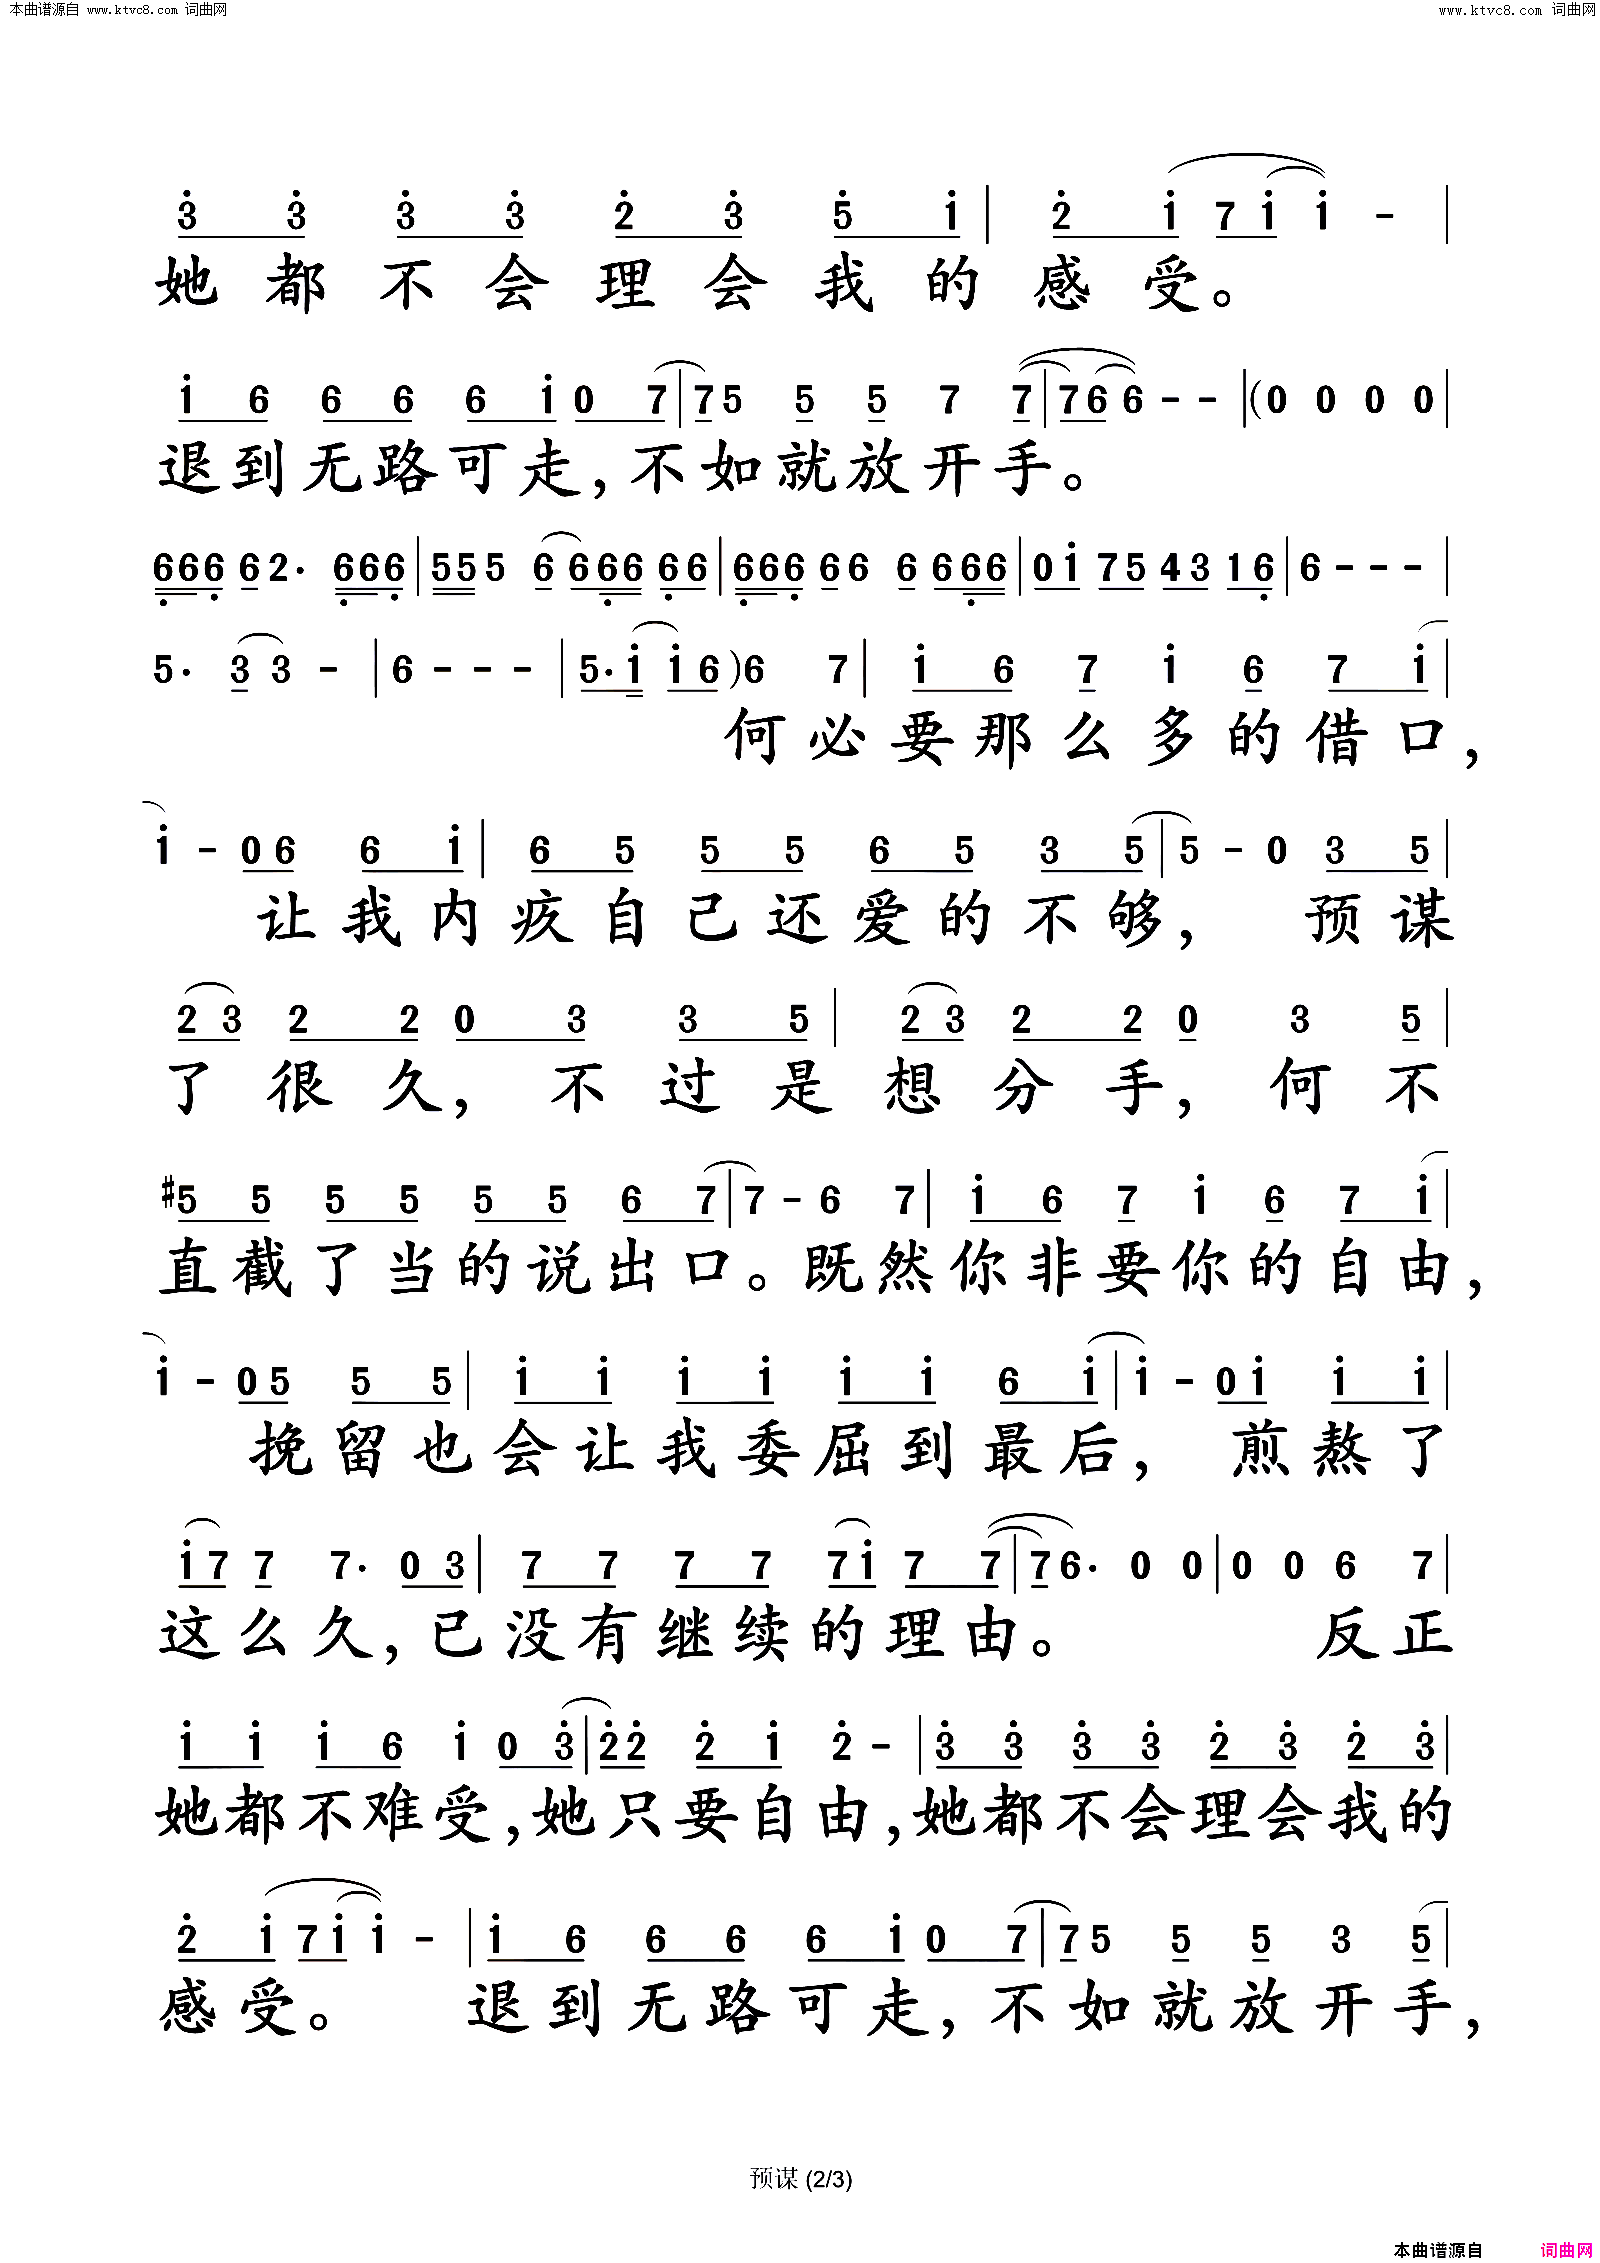 本曲谱源自 www.ktvc8.com 词曲网 www.ktvc8.com 词曲网
3̇ 3̇ 3̇ 3̇ 2̇ 3̇ 5̇ i | 2̇ i 7 i i - |
她都不会理会我的感受。
i 6 6 6 6 i 0 7 | 7 5 5 5 7 7 | 7 6 6 - - | (0 0 0 0 |
退到无路可走,不如就放开手。
6̣ 6 6̣ 6 2· 6̣ 6 6̣ | 5 5 5 6 6 6̣ 6 6̣ 6 | 6̣ 6 6̣ 6 6 6 6 6̣ 6 | 0 i 7 5 4 3 1 6̣ | 6 - - - |
5· 3 3 - | 6 - - - | 5· i i 6 ) 6 7 | i 6 7 i 6 7 i |
何必要那么多的借口,
i - 0 6 6 i | 6 5 5 5 6 5 3 5 | 5 - 0 3 5 |
让我内疚自己还爱的不够, 预谋
2 3 2 2 0 3 3 5 | 2 3 2 2 0 3 5 |
了很久, 不过是想分手, 何不
#5 5 5 5 5 5 6 7 | 7 - 6 7 | i 6 7 i 6 7 i |
直截了当的说出口。既然你非要你的自由,
i - 0 5 5 5 | i i i i i i 6 i | i - 0 i i i |
挽留也会让我委屈到最后, 煎熬了
i 7 7 7· 0 3 | 7 7 7 7 7 i 7 7 | 7 6· 0 0 | 0 0 6 7 |
这么久,已没有继续的理由。 反正
i i i 6 i 0 3̇ | 2̇ 2̇ 2̇ i 2̇ - | 3̇ 3̇ 3̇ 3̇ 2̇ 3̇ 2̇ 3̇ |
她都不难受,她只要自由,她都不会理会我的
2̇ i 7 i i - | i 6 6 6 6 i 0 7 | 7 5 5 5 3 5 |
感受。 退到无路可走,不如就放开手,
预谋 (2/3)
本曲谱源自 词曲网